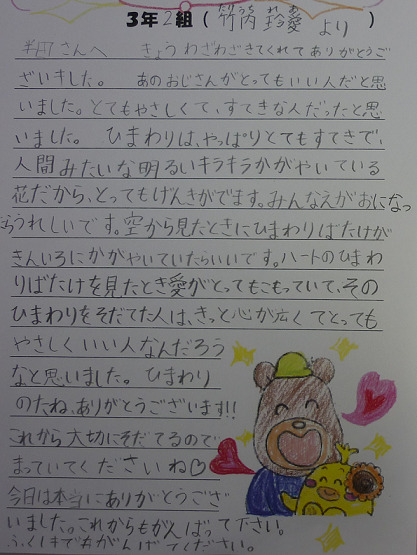 3年2組(竹内玲愛より)
たけうち れあ
さんへ きょうわざわざきてくれてありがとうご
ざいました。 あのおじさんがとってもいい人だと思
いました。とてもやさしくて、すてきな人だったと思
いました。 ひまわりは、やっぱりとてもすてきで、
人間みたいな明るいキラキラかがやいている
花だから、とってもげんきがでます。みんなえがおになっ
たらうれしいです。空から見たときにひまわりばたけが
きんいろにかがやいていたらいいです。ハートのひまわ
りばたけを見たとき愛がとってもこもっていて、その
ひまわりをそだてた人は、きっと心が広くてとっても
やさしくいい人なんだろう
なと思いました。 ひまわり
のたね、ありがとうございます!!
これから大切にそだてるので
まっていてくださいね♡
今日は本当にありがとうござ
いました。これからもがんばって下さい。
ふくしまでもがんばってください。